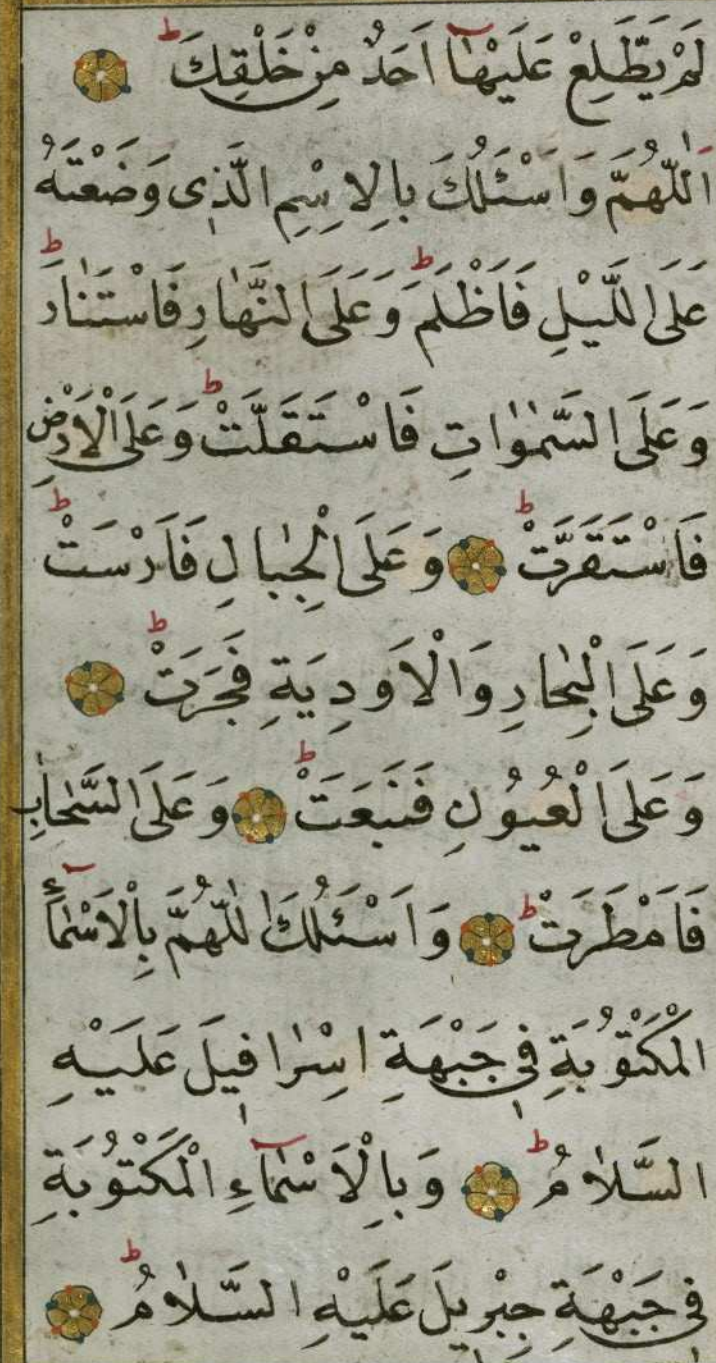 لَمْ يَطَّلِعْ عَلَيْهَٓا اَحَدٌ مِنْ خَلْقِكَ ط
اَللّٰهُمَّ وَاَسْئَلُكَ بِالِاسْمِ الَّذِى وَضَعْتَهُ
عَلَى اللَّيْلِ فَاَظْلَمَ ط وَعَلَى النَّهَارِ فَاسْتَنَارَ ط
وَعَلَى السَّمٰوَاتِ فَاسْتَقَلَّتْ ط وَعَلَى الْاَرْضِ
فَاسْتَقَرَّتْ ط وَعَلَى الْجِبَالِ فَاَرْسَتْ ط
وَعَلَى الْبِحَارِ وَالْاَوْدِيَةِ فَجَرَتْ ط
وَعَلَى الْعُيُونِ فَنَبَعَتْ ط وَعَلَى السَّحَابِ
فَاَمْطَرَتْ ط وَاَسْئَلُكَ اللّٰهُمَّ بِالْاَسْمَٓاءِ
الْمَكْتُوبَةِ فِى جَبْهَةِ اِسْرَافِيلَ عَلَيْهِ
السَّلَامُ ط وَبِالْاَسْمَٓاءِ الْمَكْتُوبَةِ
فِى جَبْهَةِ جِبْرِيلَ عَلَيْهِ السَّلَامُ ط